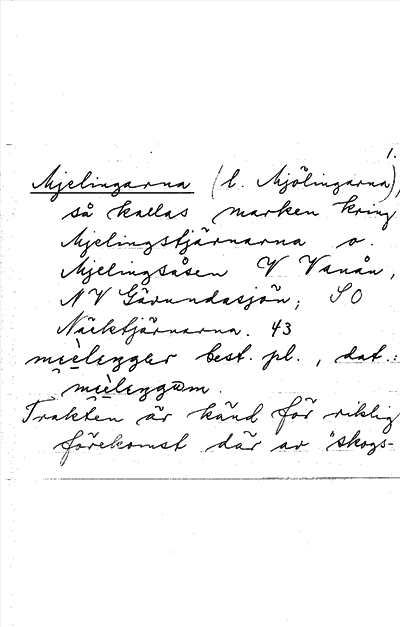 1.
Mjelingarna (l. Mjölingarna),
så kallas marken kring
Mjelingstjärnarna o.
Mjelingsåsen V Vanån,
NV Gärundasjön; SO
Näcktjärnarna. 43
best. pl., dat.:
Trakten är känd för riklig
förekomst där av "skogs-